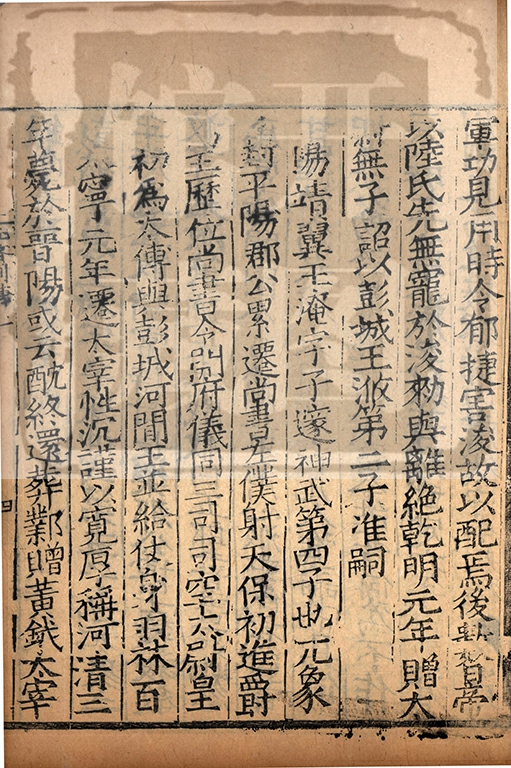 軍功見用時令郁捷害浚故以配焉後數日帝
以陸氏先無寵於浚勑與離絶乾明元年贈太
無子詔以彭城王浟第二子准嗣
陽靖翼王淹字子邃神武第四子也元象
封平陽郡公累遷尚書左僕射天保初進爵
王歷位尚書令開府儀同三司司空太尉皇
初爲太傅與彭城河間王並給仗身羽林百
寧元年遷太宰性沉謹以寛厚稱河清三
年薨於晉陽或云酖終還葬鄴贈黃鉞太宰
四